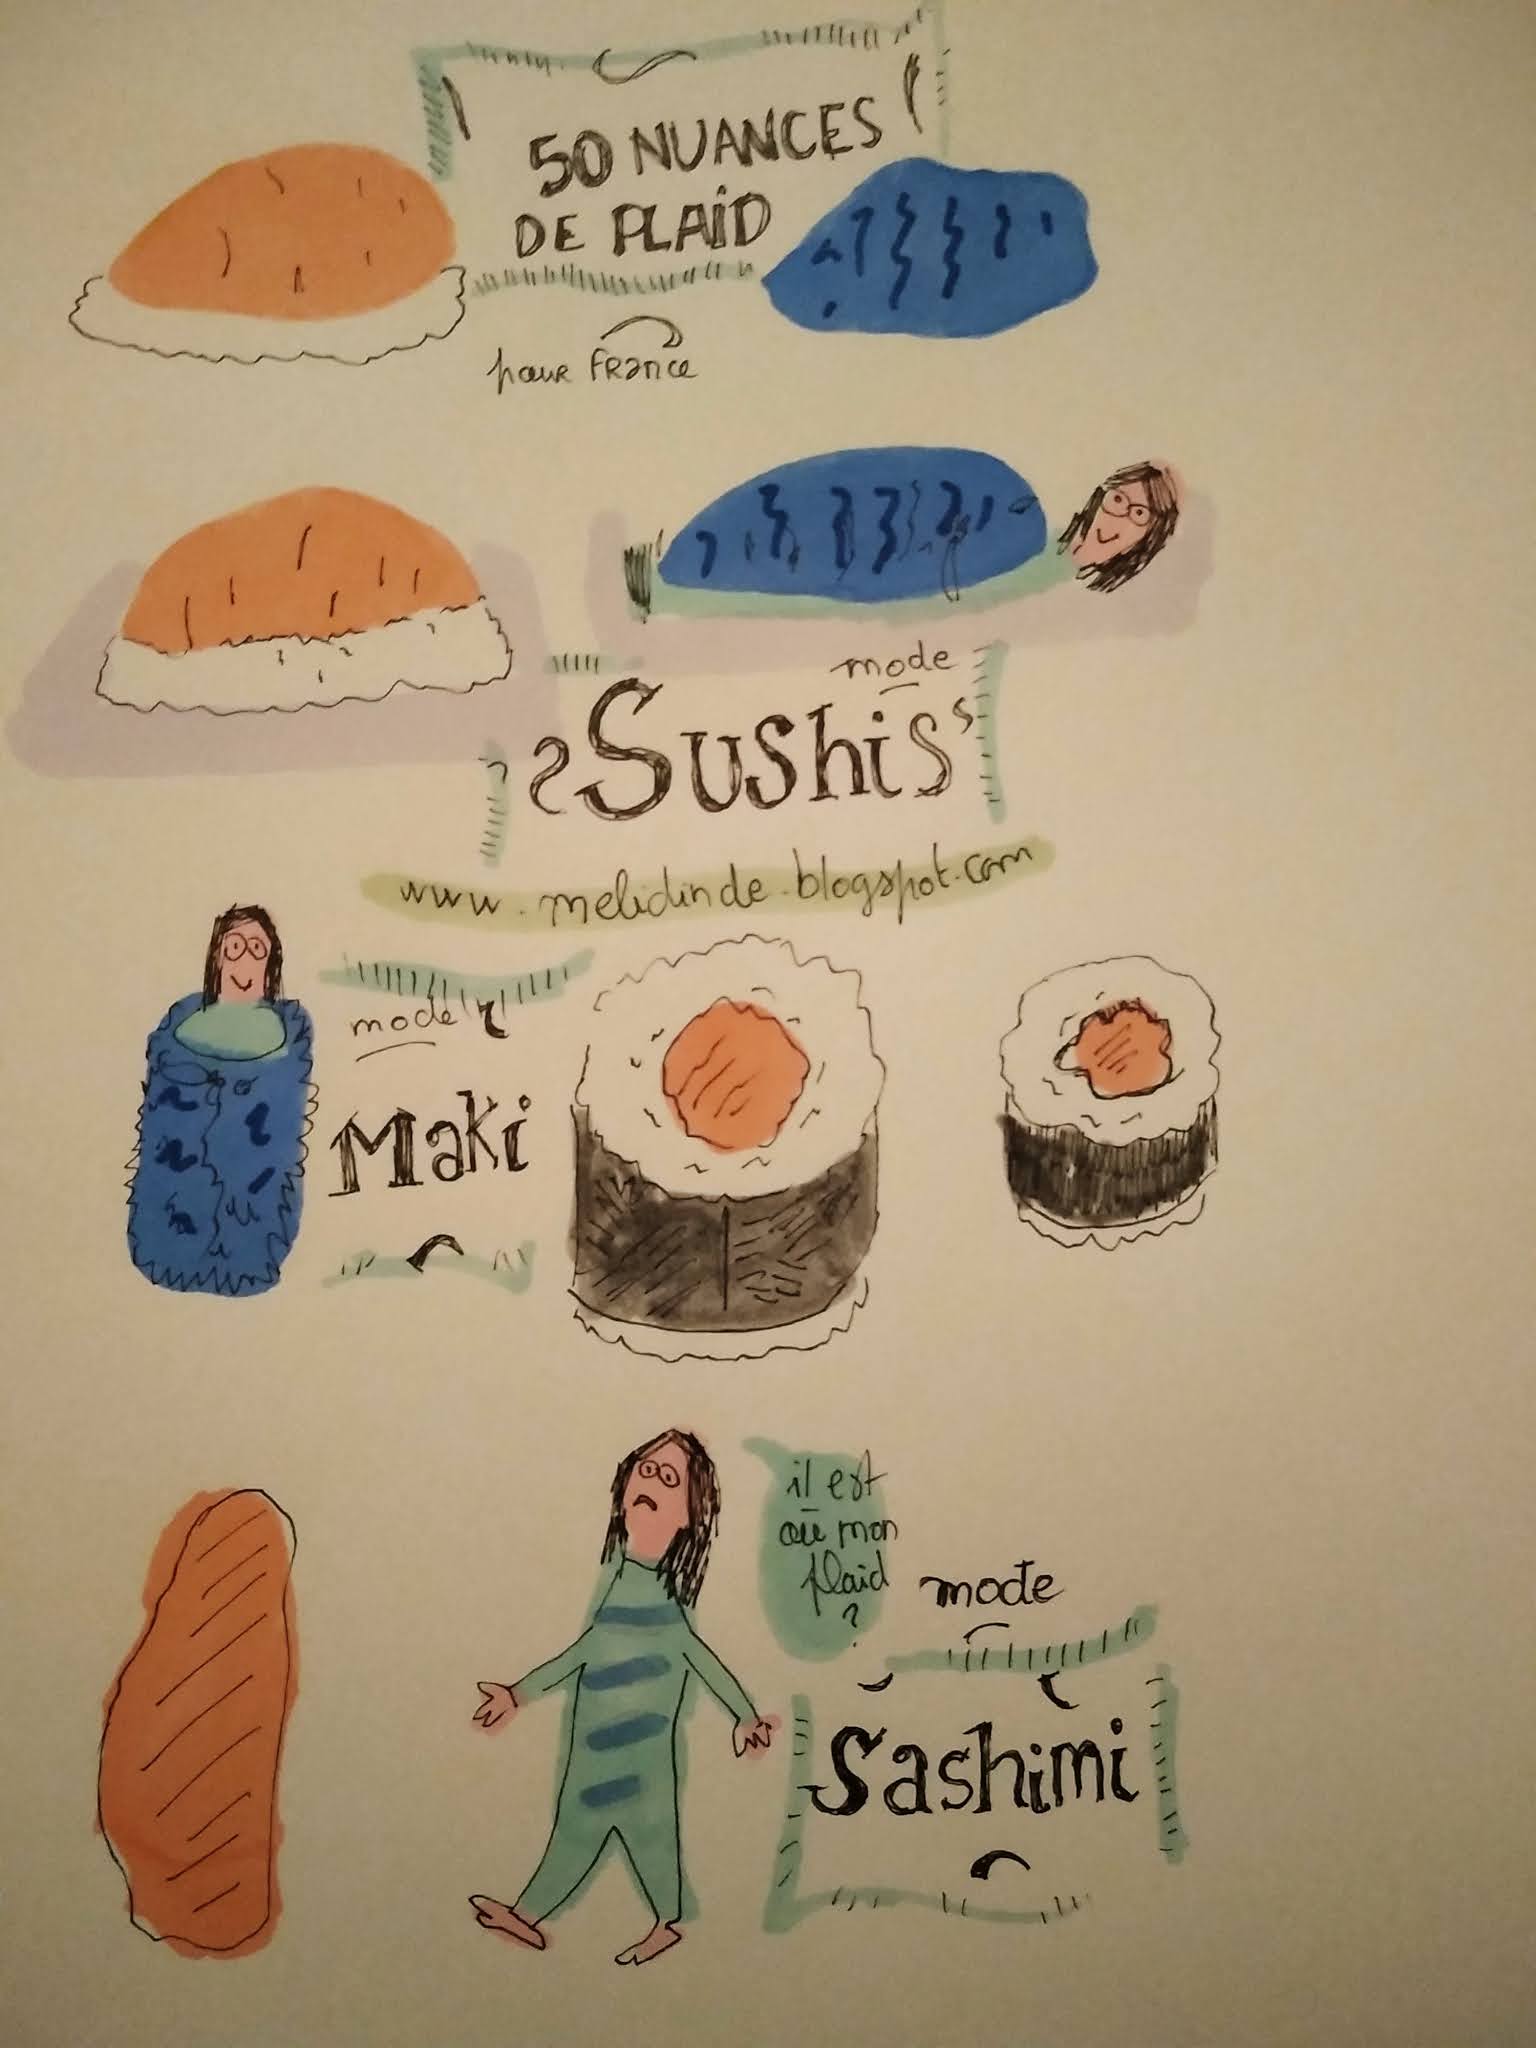 50 NUANCES
DE PLAiD
pour France
mode
Sushis
www.melidinde.blogspot.com
mode
Maki
il est
où mon
plaid
?
mode
Sashimi